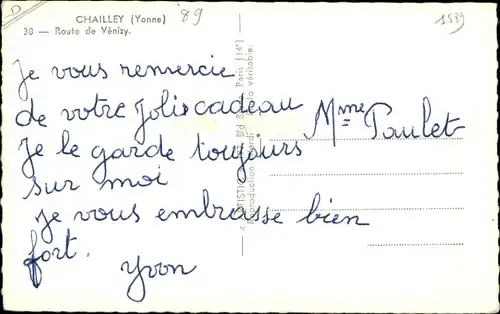 CHAILLEY (Yonne)
38 — Route de Vénizy.
89
1539
Je vous remercie
de votre joli cadeau
Je le garde toujours
sur moi
Je vous embrasse bien
fort.
Yvon
Mme Paulet
D
Paris (14e)
véritable.